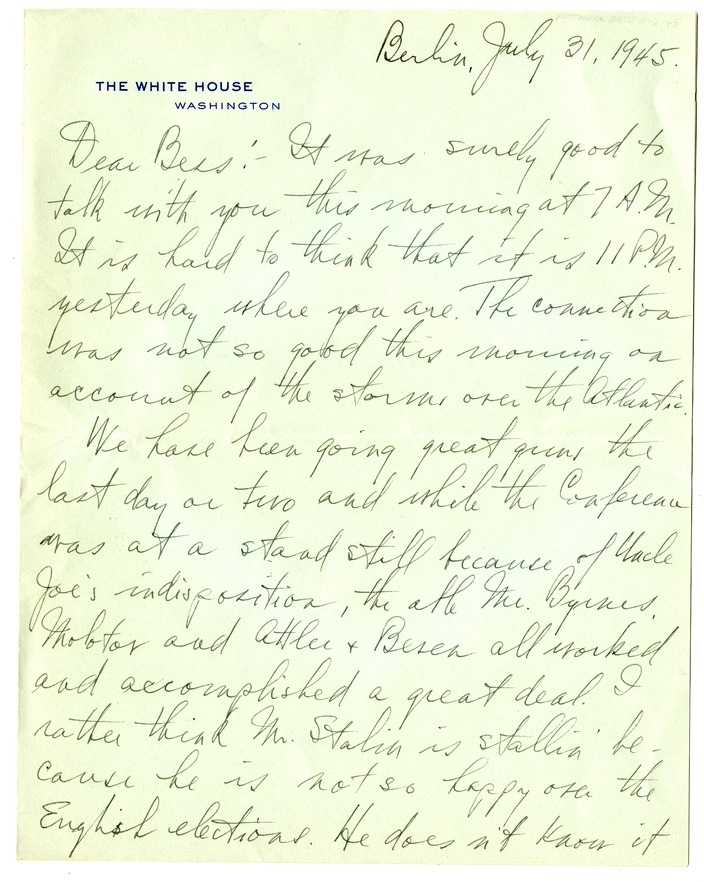 Berlin, July 31, 1945.
THE WHITE HOUSE
WASHINGTON
Dear Bess:- It was surely good to
talk with you this morning at 7 A.M.
It is hard to think that it is 11 P.M.
yesterday where you are. The connection
was not so good this morning on
account of the storms over the Atlantic.
We have been going great guns the
last day or two and while the Conference
was at a stand still because of Uncle
Joe's indisposition, the able Mr. Byrnes,
Molotov and Attlee + Beven all worked
and accomplished a great deal. I
rather think Mr. Stalin is stallin' be-
cause he is not so happy over the
English elections. He does n't know it